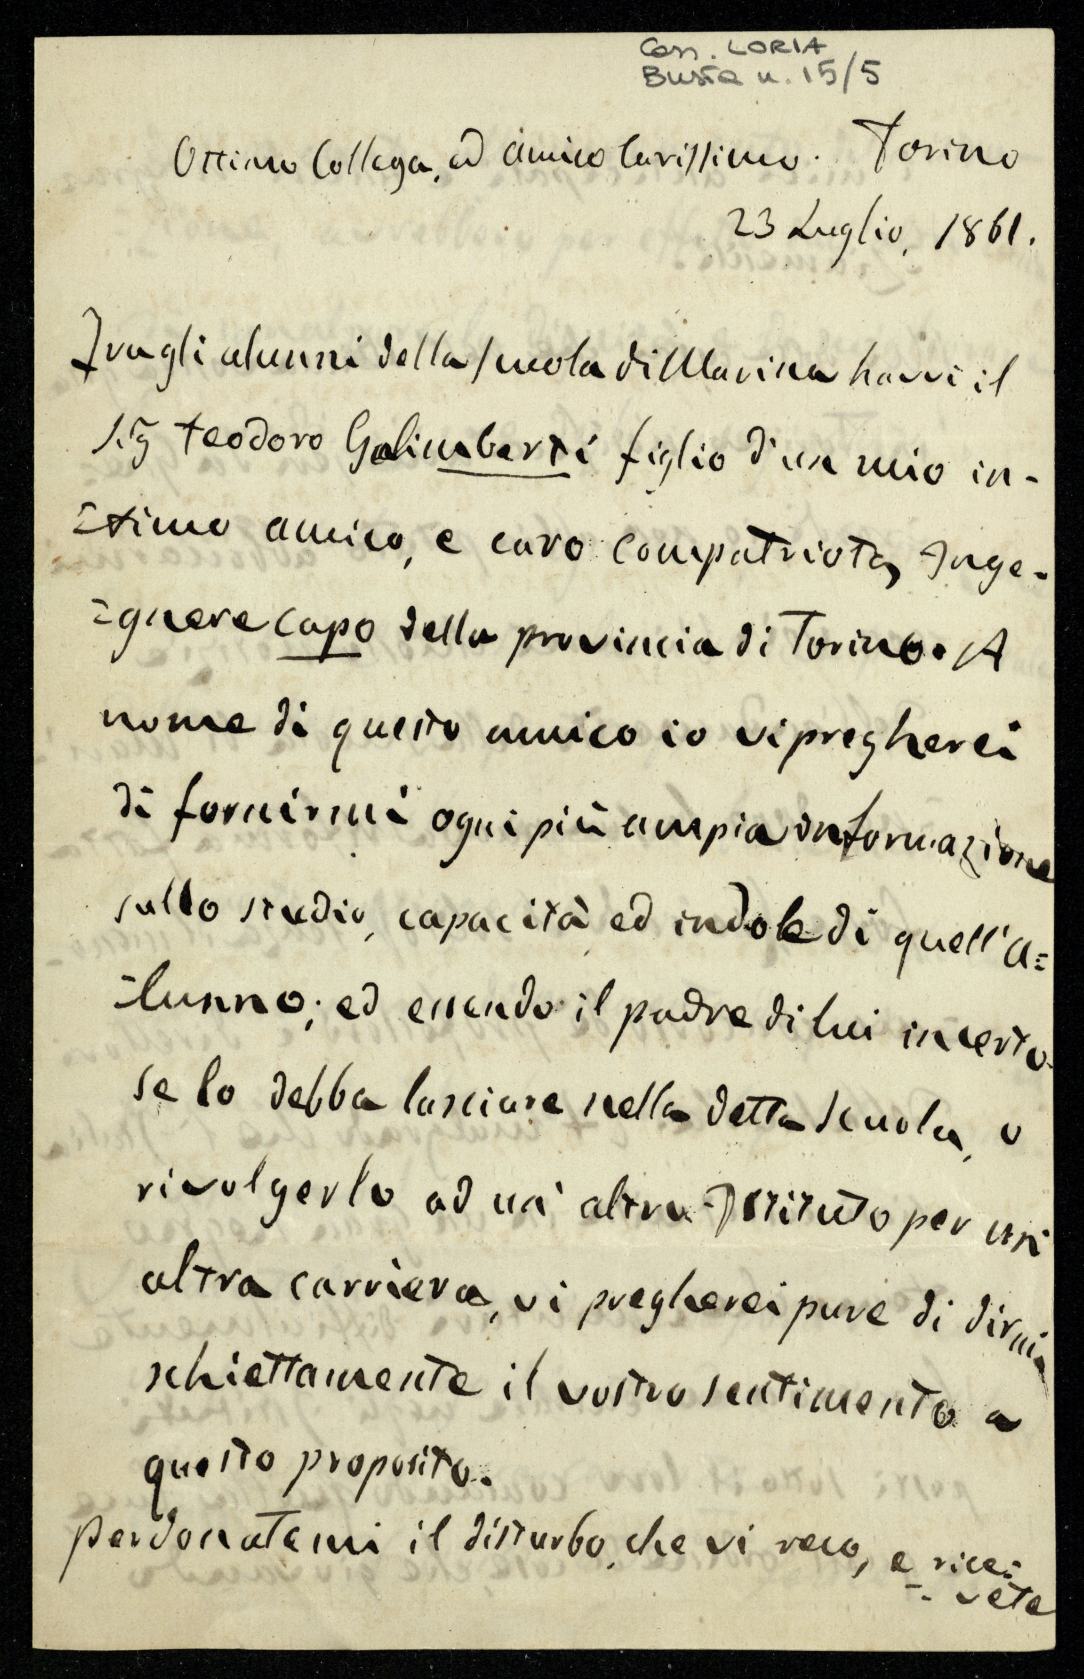 Cass. LORIA
Busta n. 15/5
Ottimo Collega, ed amico carissimo. Torino
23 Luglio, 1861.
Fra gli alunni della scuola di Marina havvi il
Sig Teodoro Galimberti figlio d'un mio in-
=timo amico, e caro compatriota, Inge-
=gnere capo della provincia di Torino. A
nome di questo amico io vi pregherei
di fornirmi ogni più ampia informazione
sullo studio, capacità ed indole di quell'a=
=lunno; ed essendo il padre di lui incerto
se lo debba lasciare nella detta scuola, o
rivolgerlo ad un' altro Istituto per un'
altra carriera, vi pregherei pure di dirmi
schiettamente il vostro sentimento a
questo proposito.
Perdonatemi il disturbo, che vi reco, e rice=
=vete